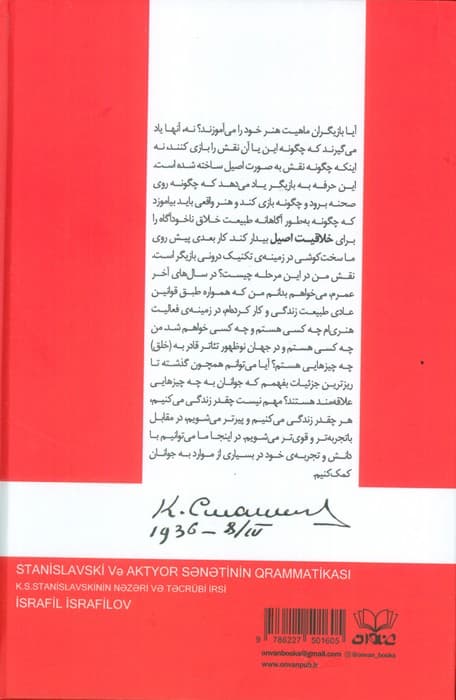 آیا بازیگران ماهیت هنر خود را می‌آموزند؟ نه، آنها یاد
می‌گیرند که چگونه این یا آن نقش را بازی کنند، نه
اینکه چگونه نقش به صورت اصیل ساخته شده است.
این حرفه به بازیگر یاد می‌دهد که چگونه روی
صحنه برود و چگونه بازی کند و هنر واقعی باید بیاموزد
که چگونه به‌طور آگاهانه طبیعت خلاق ناخودآگاه را
برای خلاقیت اصیل بیدار کند. کار بعدی پیش روی
ما سخت‌کوشی در زمینه‌ی تکنیک درونی بازیگر است.
نقش من در این مرحله چیست؟ در سال‌های آخر
عمرم، می‌خواهم بدانم من که همواره طبق قوانین
عادی طبیعت زندگی و کار کرده‌ام، در زمینه‌ی فعالیت
هنری‌ام چه کسی هستم و چه کسی خواهم شد. من
چه کسی هستم و در جهان نوظهور تئاتر قادر به (خلق)
چه چیزهایی هستم؟ آیا می‌توانم همچون گذشته تا
ریزترین جزئیات بفهمم که جوانان به چه چیزهایی
علاقه‌مند هستند؟ مهم نیست چقدر زندگی می‌کنیم،
هر چقدر زندگی می‌کنیم و پیرتر می‌شویم، در مقابل
باتجربه‌تر و قوی‌تر می‌شویم. در اینجا ما می‌توانیم با
دانش و تجربه‌ی خود در بسیاری از موارد به جوانان
کمک کنیم.
К. Станисл
1936 - 8/IV
STANİSLAVSKİ Və AKTYOR SƏNƏTİNİN QRAMMATİKASI
K.S.STANİSLAVSKİNİN NƏZƏRİ VƏ TƏCRÜBİ İRSİ
İSRAFİL İSRAFİLOV
9 786227 501605
onvanbooks@gmail.com @onvan_books
www.onvanpub.ir
عنوان